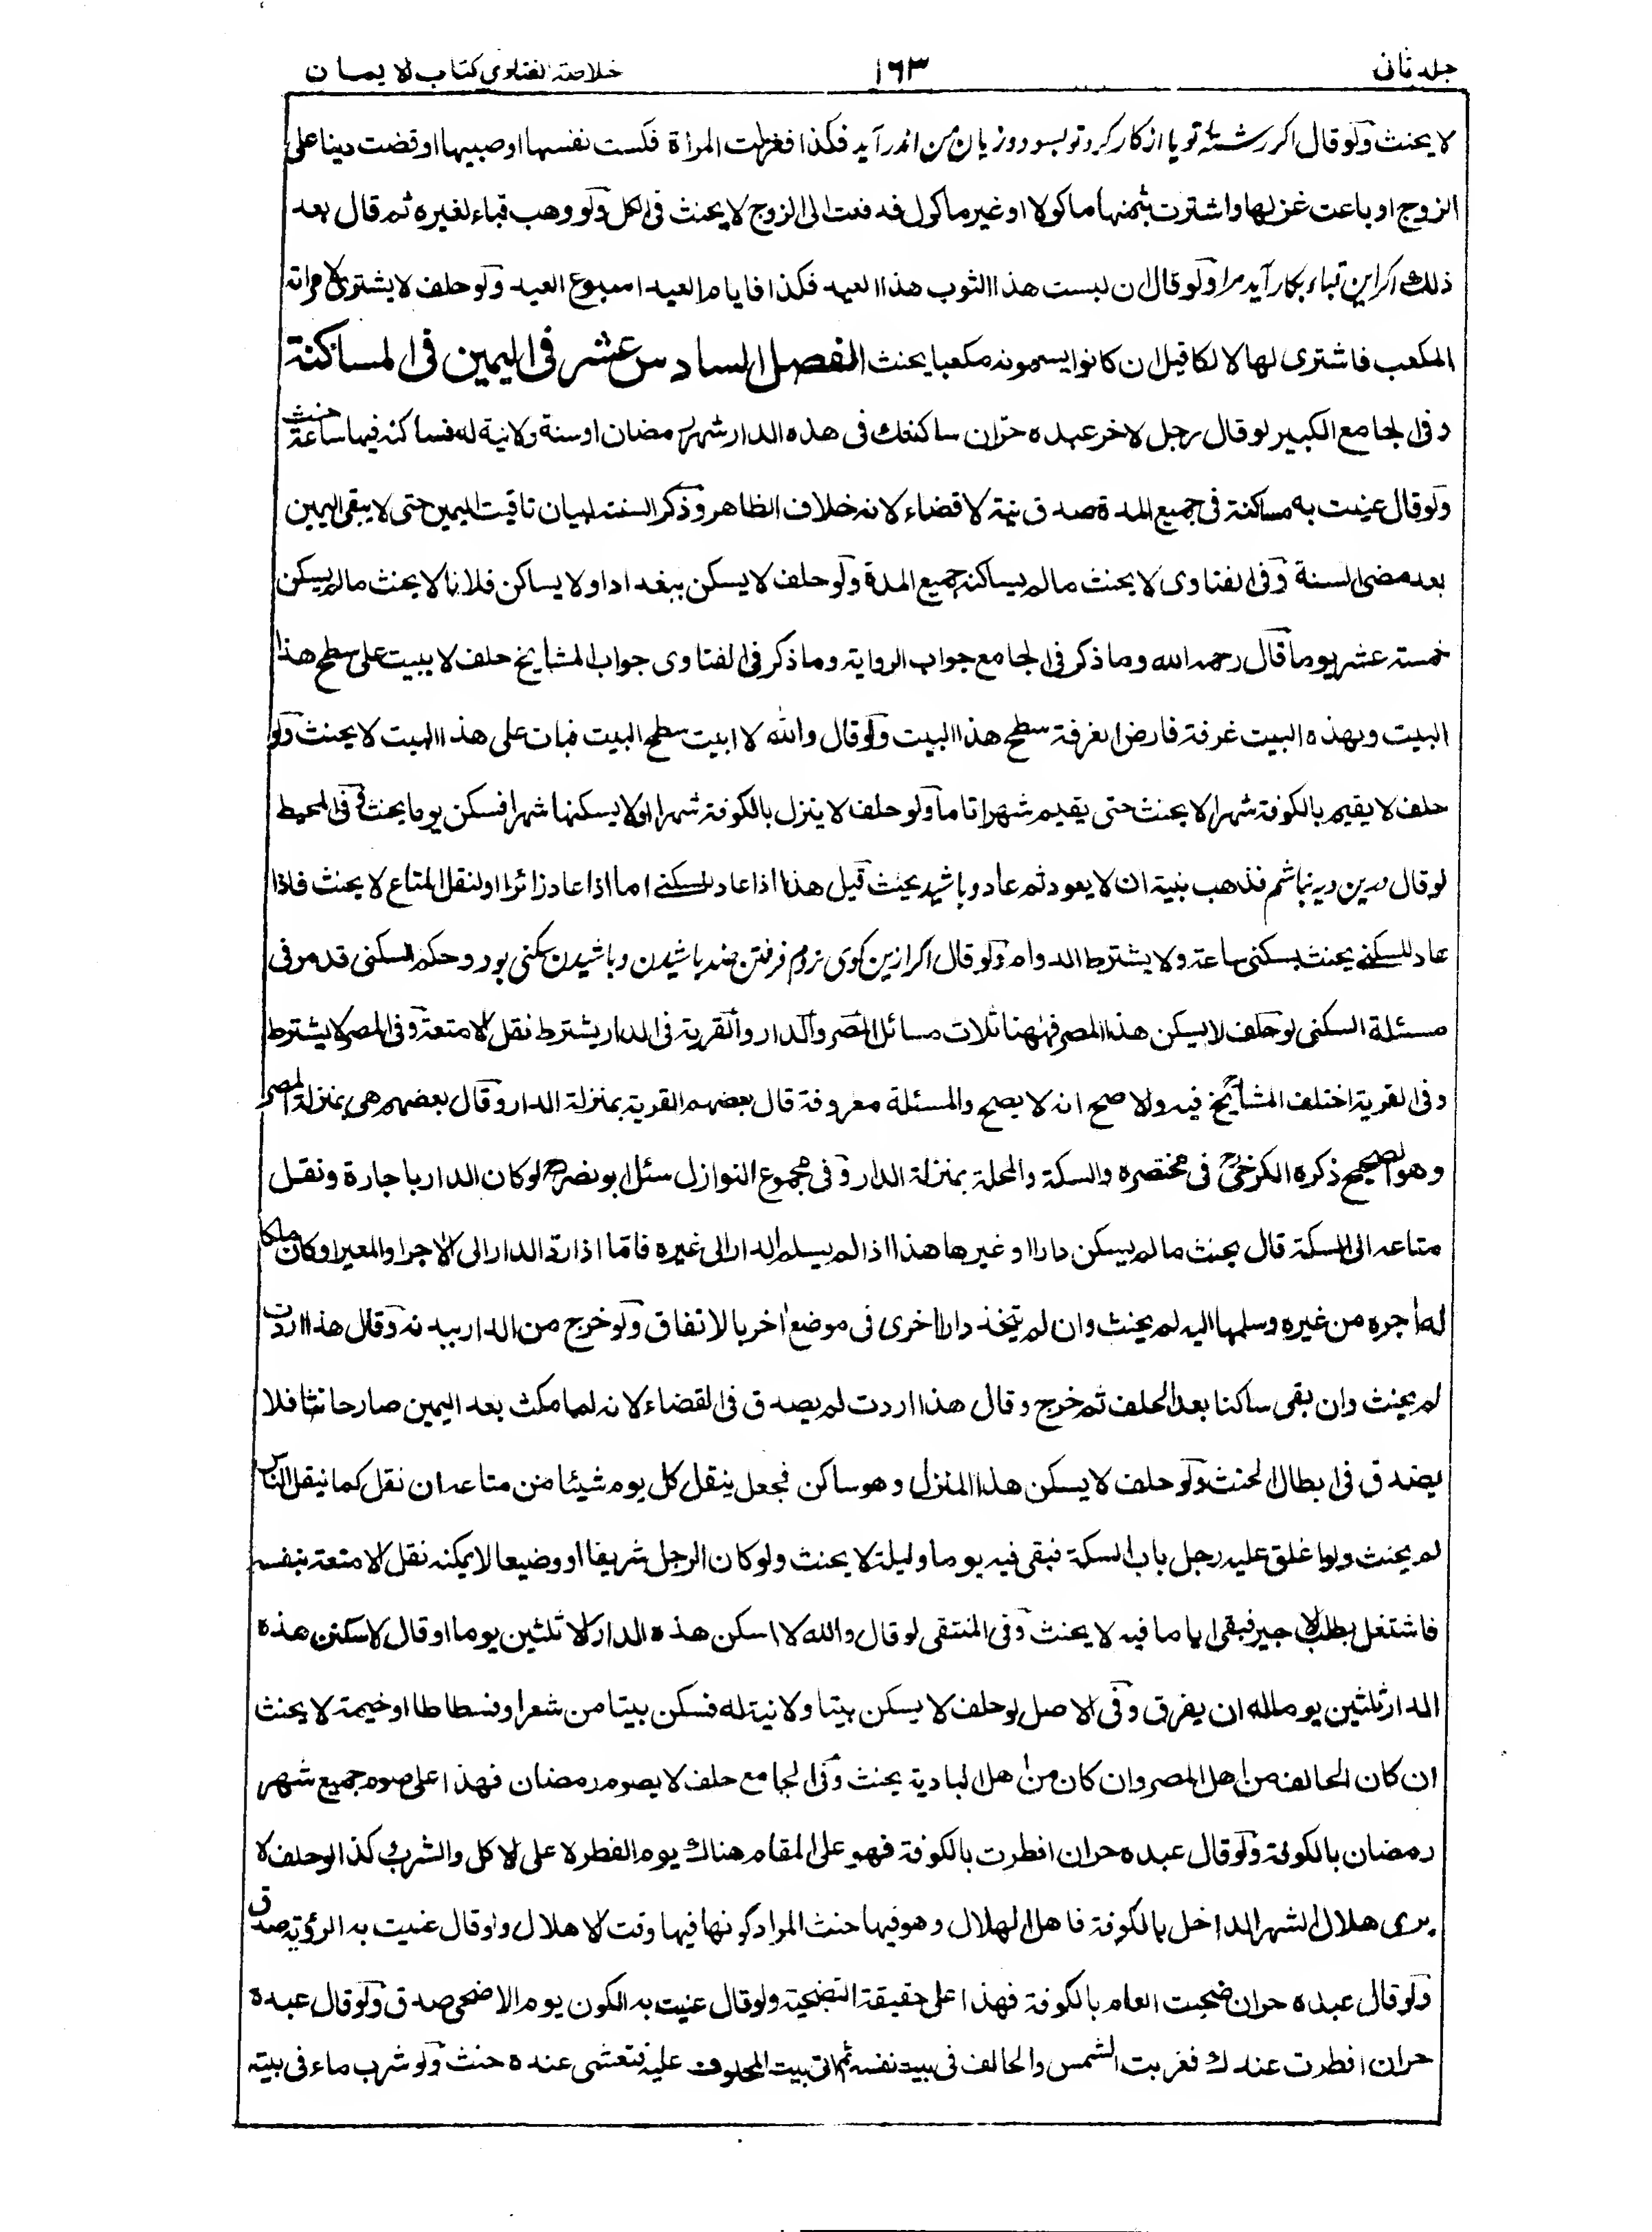 جلد ثانى ١٦٣ خلاصة الفتاوى كتاب الايمان
لا يحنث ولو قال اكر رشتۀ تو يا از كار كرد تو بسود وزيان من اندر آيد فكذا فغزلت المرأة فكست نفسها او صبيها او قضت دينا على
الزوج او باعت غزلها واشترت بثمنها ماكولا او غير ماكول فدفعت الى الزوج لا يحنث فى الكل ولو وهب قباء لغيره ثم قال بعد
ذلك اكر اين قباء بكار آيد مرا ولو قال ان لبست هذا الثوب هذا العيد فكذا فايام العيد اسبوع العيد ولو حلف لا يشترى لامراته
المكعب فاشترى لها لالكا قيل ان كانوا يسمونه مكعبا يحنث الفصل السادس عشر فى اليمين فى المساكنة
وفى الجامع الكبير لو قال رجل لاخر عبده حر ان ساكنتك فى هذه الدار شهر رمضان او سنة ولا نية له فساكنه فيها ساعة حنث
ولو قال عنيت به مساكنة فى جميع المدة صدق نية لا قضاء لانه خلاف الظاهر وذكر السنة لبيان تاقيت اليمين حتى لا يبقى اليمين
بعد مضى السنة وفى الفتاوى لا يحنث مالم يساكنه جميع المدة ولو حلف لا يسكن ببغداد او لا يساكن فلانا لا يحنث مالم يسكن
خمسة عشر يوما قال رحمه الله وما ذكر فى الجامع جواب الرواية وما ذكر فى الفتاوى جواب المشايخ حلف لا يبيت على سطح هذا
البيت وبهذه البيت غرفة فارض الغرفة سطح هذا البيت ولو قال والله لا ابيت سطح البيت فبات على هذا البيت لا يحنث ولو
حلف لا يقيم بالكوفة شهرا لا يحنث حتى يقيم شهرا تاما ولو حلف لا ينزل بالكوفة شهرا او لا يسكنها شهرا فسكن يوما يحنث وفى المحيط
لو قال درين ديه نباشم فذهب بنية ان لا يعود ثم عاد وباشيد يحنث قيل هذا اذا عاد للسكنى اما اذا عاد زائرا او لنقل المتاع لا يحنث فاذا
عاد للسكنى يحنث بسكنى ساعة ولا يشترط الدوام ولو قال اكر ازين كوى نروم فرفتن ضد باشيدن وباشيدن سكنى بود وحكم السكنى قد مر فى
مسئلة السكنى لو حلف لا يسكن هذا المصر فههنا ثلاث مسائل المصر والدار والقرية فى الدار يشترط نقل الامتعة وفى المصر لا يشترط
وفى القرية اختلف المشايخ فيه والاصح انه لا يصح والمسئلة معروفة قال بعضهم القرية بمنزلة الدار وقال بعضهم هى بمنزلة المصر
وهو الصحيح ذكره الكرخى فى مختصره والسكة والمحلة بمنزلة الدار وفى مجموع النوازل سئل ابو نصر لو كان الدار باجارة ونقل
متاعه الى السكة قال يحنث مالم يسكن دارا او غيرها هذا اذا لم يسلم الدار الى غيره فاما اذا رد الدار الى الاجر او المعير او كان ملكا
له اجره من غيره وسلمها اليه لم يحنث وان لم يتخذ دارا اخرى فى موضع اخر بالاتفاق ولو خرج من الدار ببدنه وقال هذا اردت
لم يحنث وان بقى ساكنا بعد الحلف ثم خرج وقال هذا اردت لم يصدق فى القضاء لانه لما مكث بعد اليمين صار حانثا فلا
يصدق فى ابطال الحنث ولو حلف لا يسكن هذا المنزل وهو ساكن فجعل ينقل كل يوم شيئا من متاعه ان نقل كما ينقل الناس
لم يحنث ولو اغلق عليه رجل باب السكة فبقى فيه يوما وليلة لا يحنث ولو كان الرجل شريفا او وضيعا لا يمكنه نقل الامتعة بنفسه
فاشتغل بطلب الاجير فبقى اياما فيه لا يحنث وفى المنتقى لو قال والله لا اسكن هذه الدار لا ثلثين يوما او قال لاسكنن هذه
الدار ثلثين يوما له ان يفرق وفى الاصل لو حلف لا يسكن بيتا ولا نية له فسكن بيتا من شعر او فسطاطا او خيمة لا يحنث
ان كان الحالف من اهل المصر وان كان من اهل البادية يحنث وفى الجامع حلف لا يصوم رمضان فهذا على صوم جميع شهر
رمضان بالكوفة ولو قال عبده حر ان افطرت بالكوفة فهو على المقام هناك يوم الفطر لا على الاكل والشرب كذا لو حلف لا
يرى هلال الشهر الداخل بالكوفة فاهل الهلال وهو فيها حنث المراد كونها فيها وقت الاهلال ولو قال عنيت به الرؤية صدق
ولو قال عبده حر ان ضحيت العام بالكوفة فهذا على حقيقة التضحية ولو قال عنيت به الكون يوم الاضحى صدق ولو قال عبده
حر ان افطرت عندك فغربت الشمس والحالف فى بيت نفسه ثم اتى بيت المحلوف عليه فتعشى عنده حنث ولو شرب ماء فى بيته